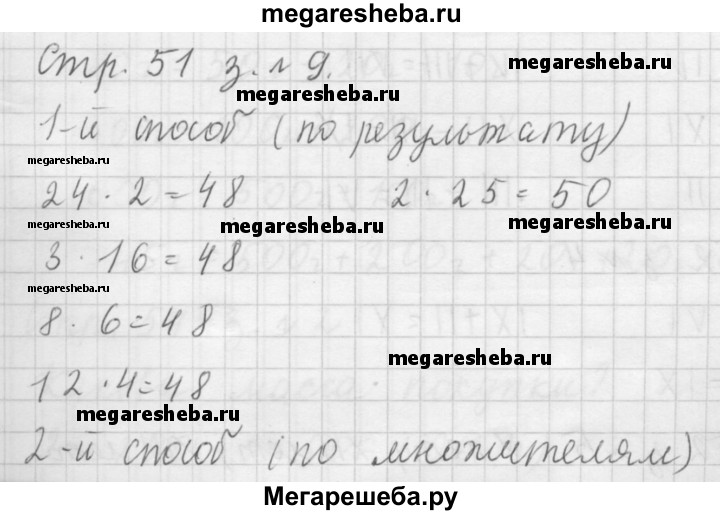 megaresheba.ru
Стр. 51 з. № 9.
megaresheba.ru
megaresheba.ru
1-й способ (по результату)
megaresheba.ru
24 · 2 = 48 2 · 25 = 50
megaresheba.ru
megaresheba.ru
megaresheba.ru
3 · 16 = 48
megaresheba.ru
8 · 6 = 48
megaresheba.ru
12 · 4 = 48
megaresheba.ru
2-й способ (по множителям)
Мегарешеба.ру